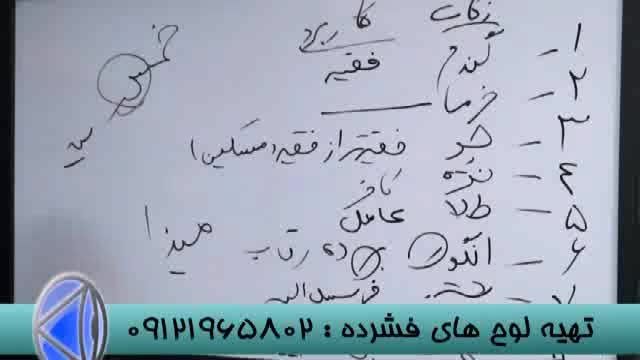 زکات کاربرد خمس
۱- گندم فقیر
۲- خرما
۳- جو فقیرتر از فقیر (مسکین)
۴- نقره کافر
۵- طلا عامل
۶- انگور برده رقاب
۷- شتر فی سبیل الله
تهیه لوح های فشرده : ۰۹۱۲۱۹۶۵۸۰۲